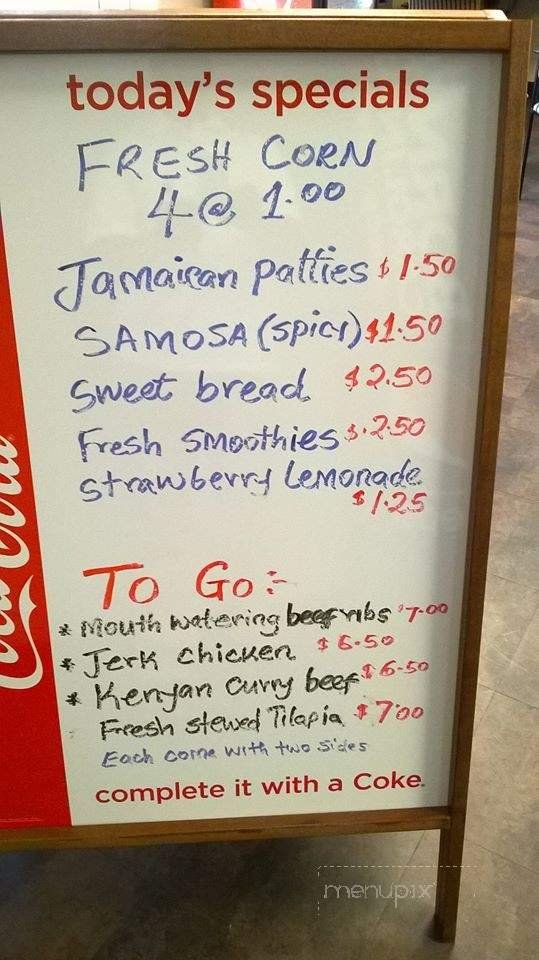 today's specials
FRESH CORN
4@ 1.00
Jamaican Patties $1.50
SAMOSA (spicy) $1.50
Sweet bread $2.50
Fresh Smoothies $.2.50
Strawberry Lemonade
$1.25
To Go:-
* Mouth watering beef ribs $7.00
* Jerk chicken $6.50
* Kenyan curry beef $6.50
Fresh stewed Tilapia $7.00
Each come with two sides
complete it with a Coke.
Coca-Cola
menupix